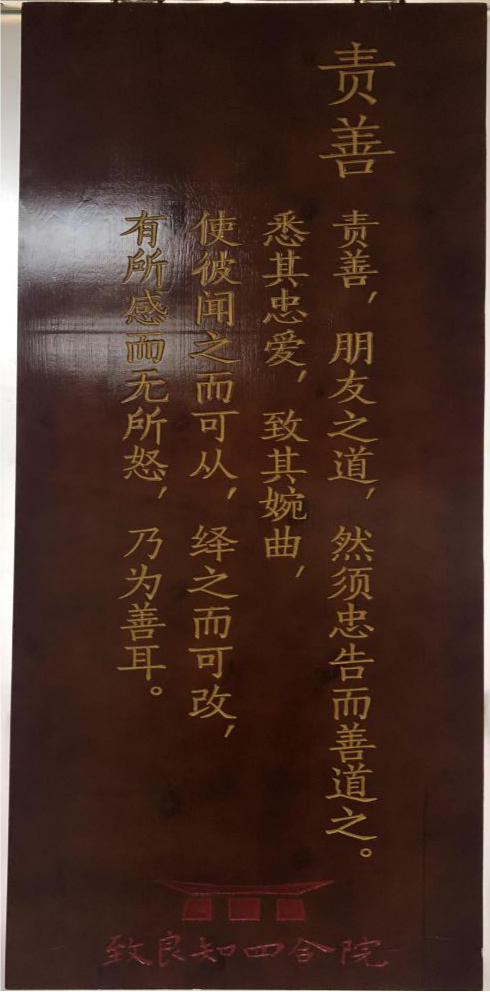 责善
责善，朋友之道，然须忠告而善道之。
悉其忠爱，致其婉曲，
使彼闻之而可从，绎之而可改，
有所感而无所怒，乃为善耳。
致良知四合院